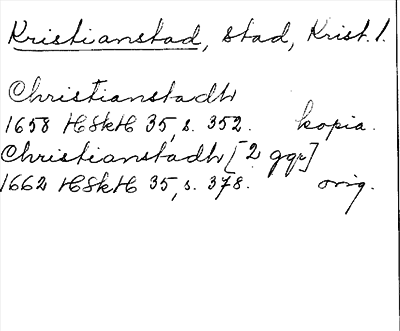 Kristianstad, stad, Krist. l.
Christianstadh
1658 HSkH 35, s. 352. kopia.
Christianstadh [2 ggr]
1662 HSkH 35, s. 378. orig.